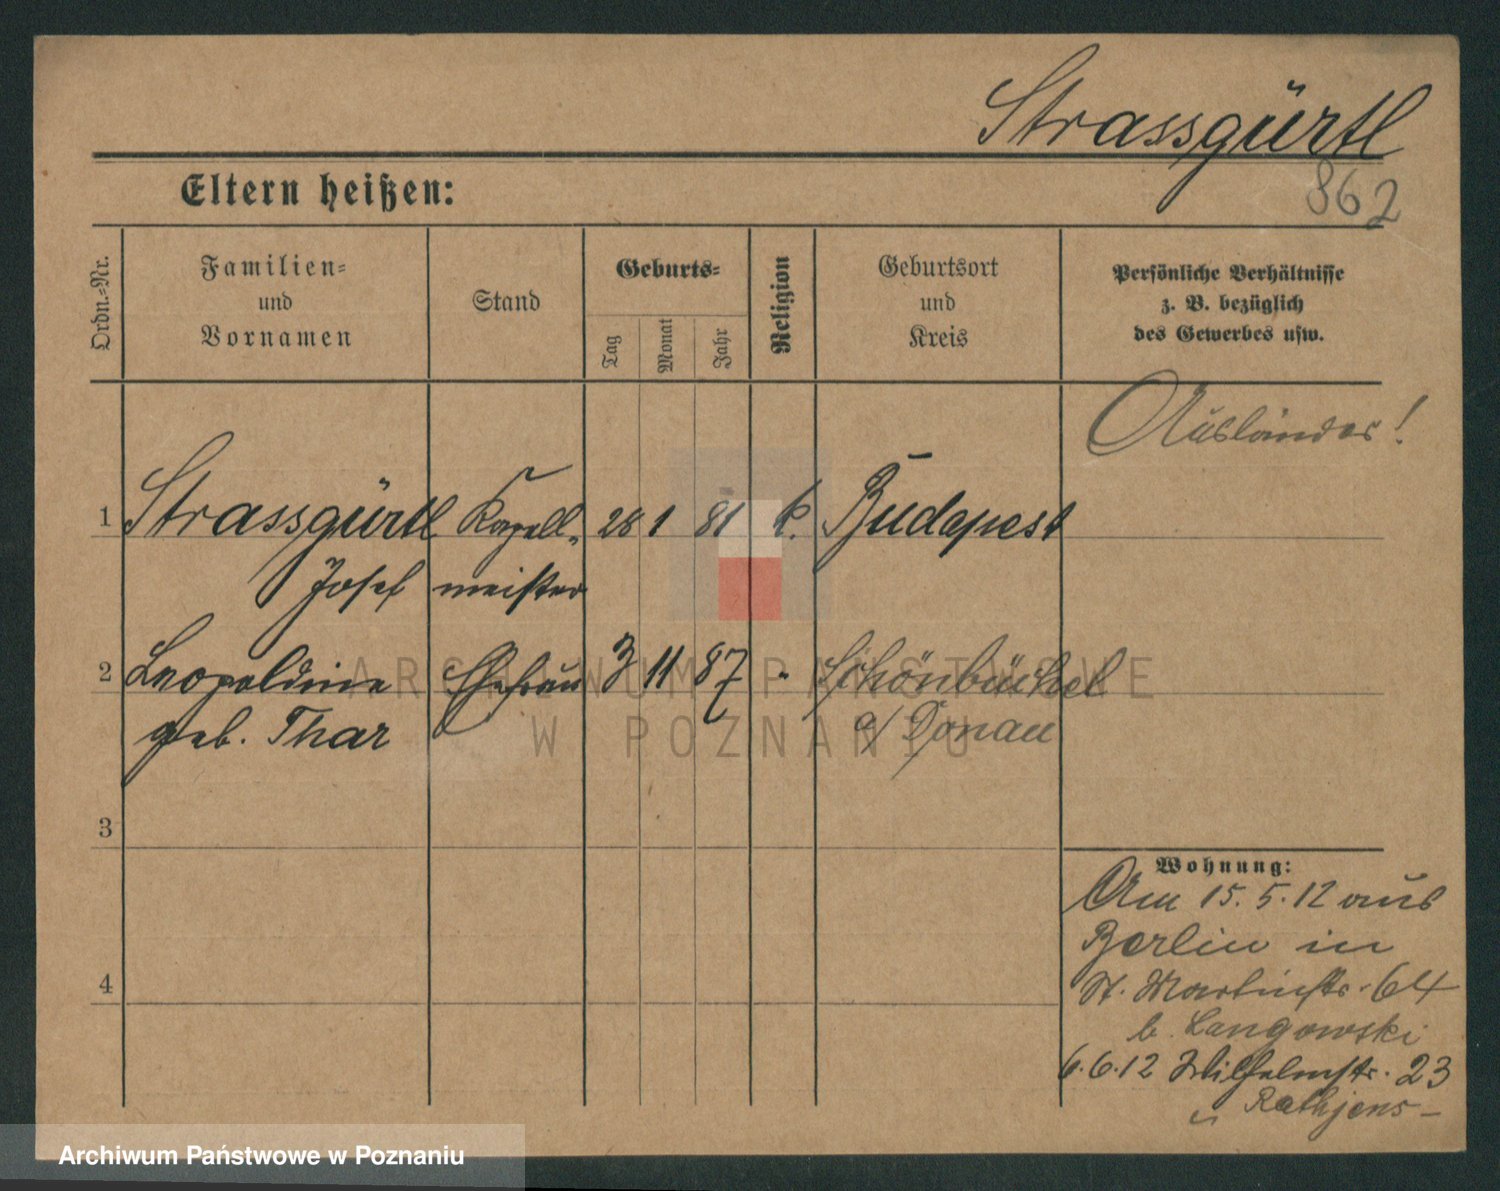 Strassgürtl
862
Eltern heißen:
Ordn.-Nr.
Familien-
und
Vornamen
Stand
Geburts-
Tag
Monat
Jahr
Religion
Geburtsort
und
Kreis
Persönliche Verhältnisse
z. B. bezüglich
des Gewerbes usw.
Ausländer!
1 Strassgürtl Kapell- 28 1 81 k. Budapest
Josef meister
2 Leopoldine Ehefrau 3 11 87 " Schönbüchel
geb. Thar a/ Donau
3
4
Wohnung:
Am 15.5.12 aus
Berlin in
St. Martinstr. 64
b. Langowski
6.6.12 Wilhelmstr. 23
" Rathjens -
ARCHIWUM PAŃSTWOWE
W POZNANIU
Archiwum Państwowe w Poznaniu